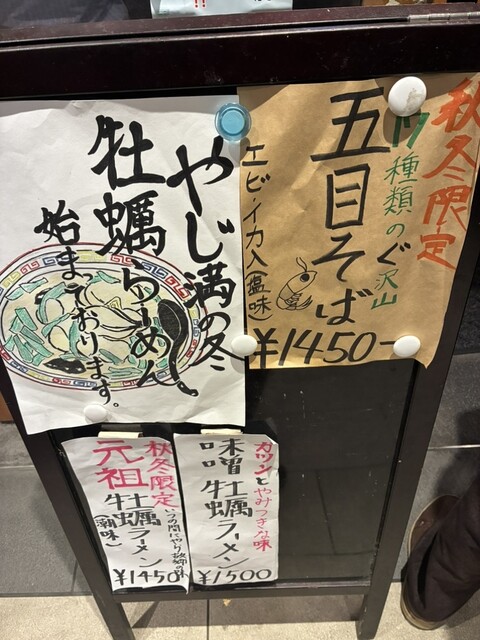 秋冬限定
17種類のぐ沢山
五目そば
エビ・イカ入(塩味)
¥1450-
やじ満の冬
牡蠣らーめん、
始まっております。
ガツンとやみつきな味
味噌牡蠣ラーメン
¥1500
秋冬限定
元祖
牡蠣ラーメン
¥1450